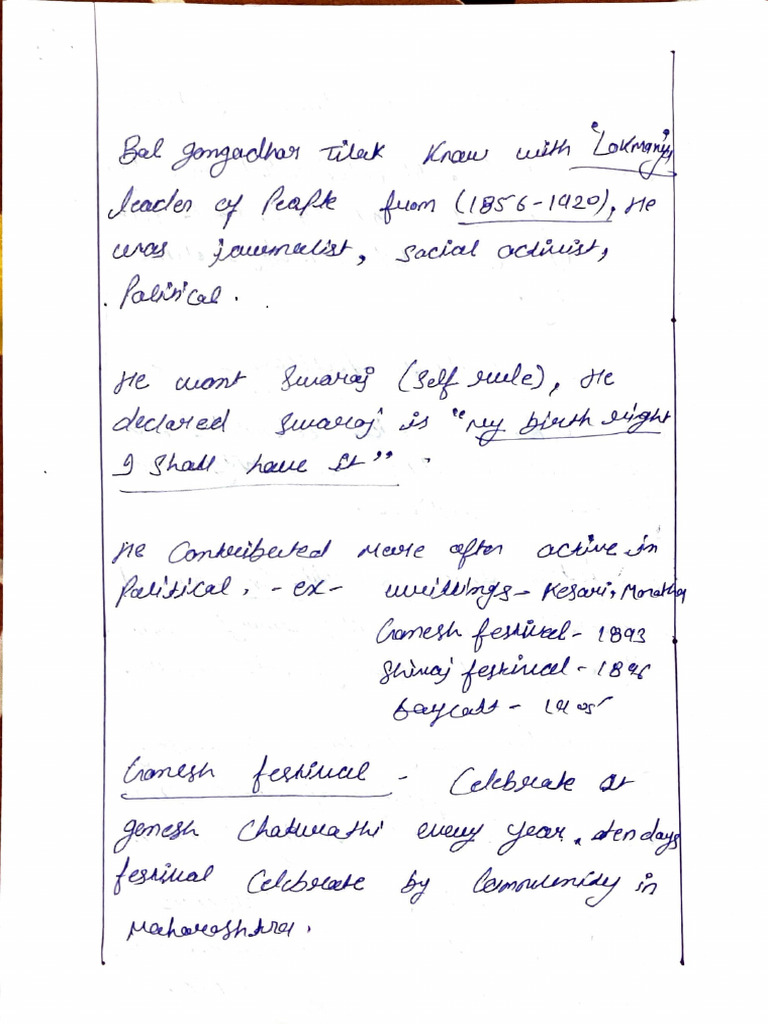 Bal gangadhar Tilak Know with "Lokmanya"
leader of People from (1856-1920), He
was journalist, social activist,
Political.
He want Swaraj (Self rule), He
declared Swaraj is "my birth right
I shall have it".
He Contributed more after active in
Political. - ex - writtings - Kesari, Maratha
Ganesh festival - 1893
Shivaj festival - 1896
Baycott - 1905
Ganesh festival - Celebrate at
genesh Chaturathi every year. ten days
festival Celebrate by Community in
Maharashtra.